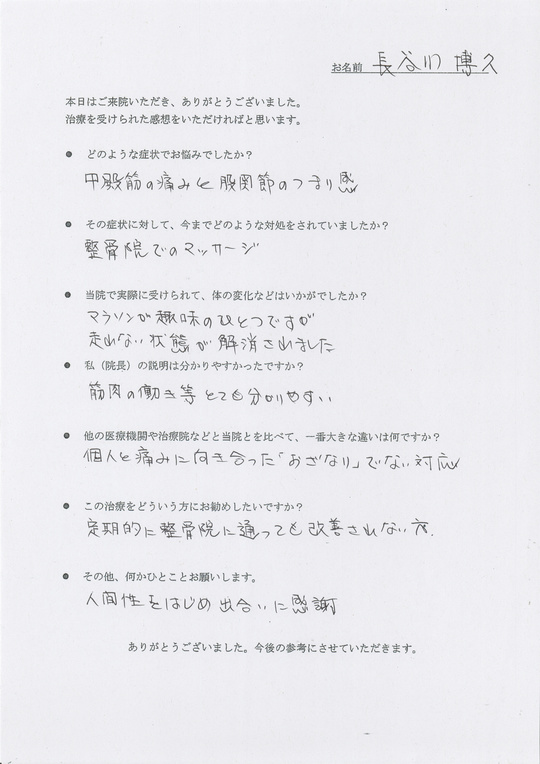 お名前 長谷川 博久
本日はご来院いただき、ありがとうございました。
治療を受けられた感想をいただければと思います。
● どのような症状でお悩みでしたか？
中殿筋の痛みと股関節のつまり感
● その症状に対して、今までどのような対処をされていましたか？
整骨院でのマッサージ
● 当院で実際に受けられて、体の変化などはいかがでしたか？
マラソンが趣味のひとつですが
走れない状態が解消されました
● 私（院長）の説明は分かりやすかったですか？
筋肉の働き等とても分かりやすい
● 他の医療機関や治療院などと当院とを比べて、一番大きな違いは何ですか？
個人と痛みに向き合った「おざなり」でない対応
● この治療をどういう方にお勧めしたいですか？
定期的に整骨院に通っても改善されない方.
● その他、何かひとことお願いします。
人間性をはじめ出合いに感謝
ありがとうございました。今後の参考にさせていただきます。